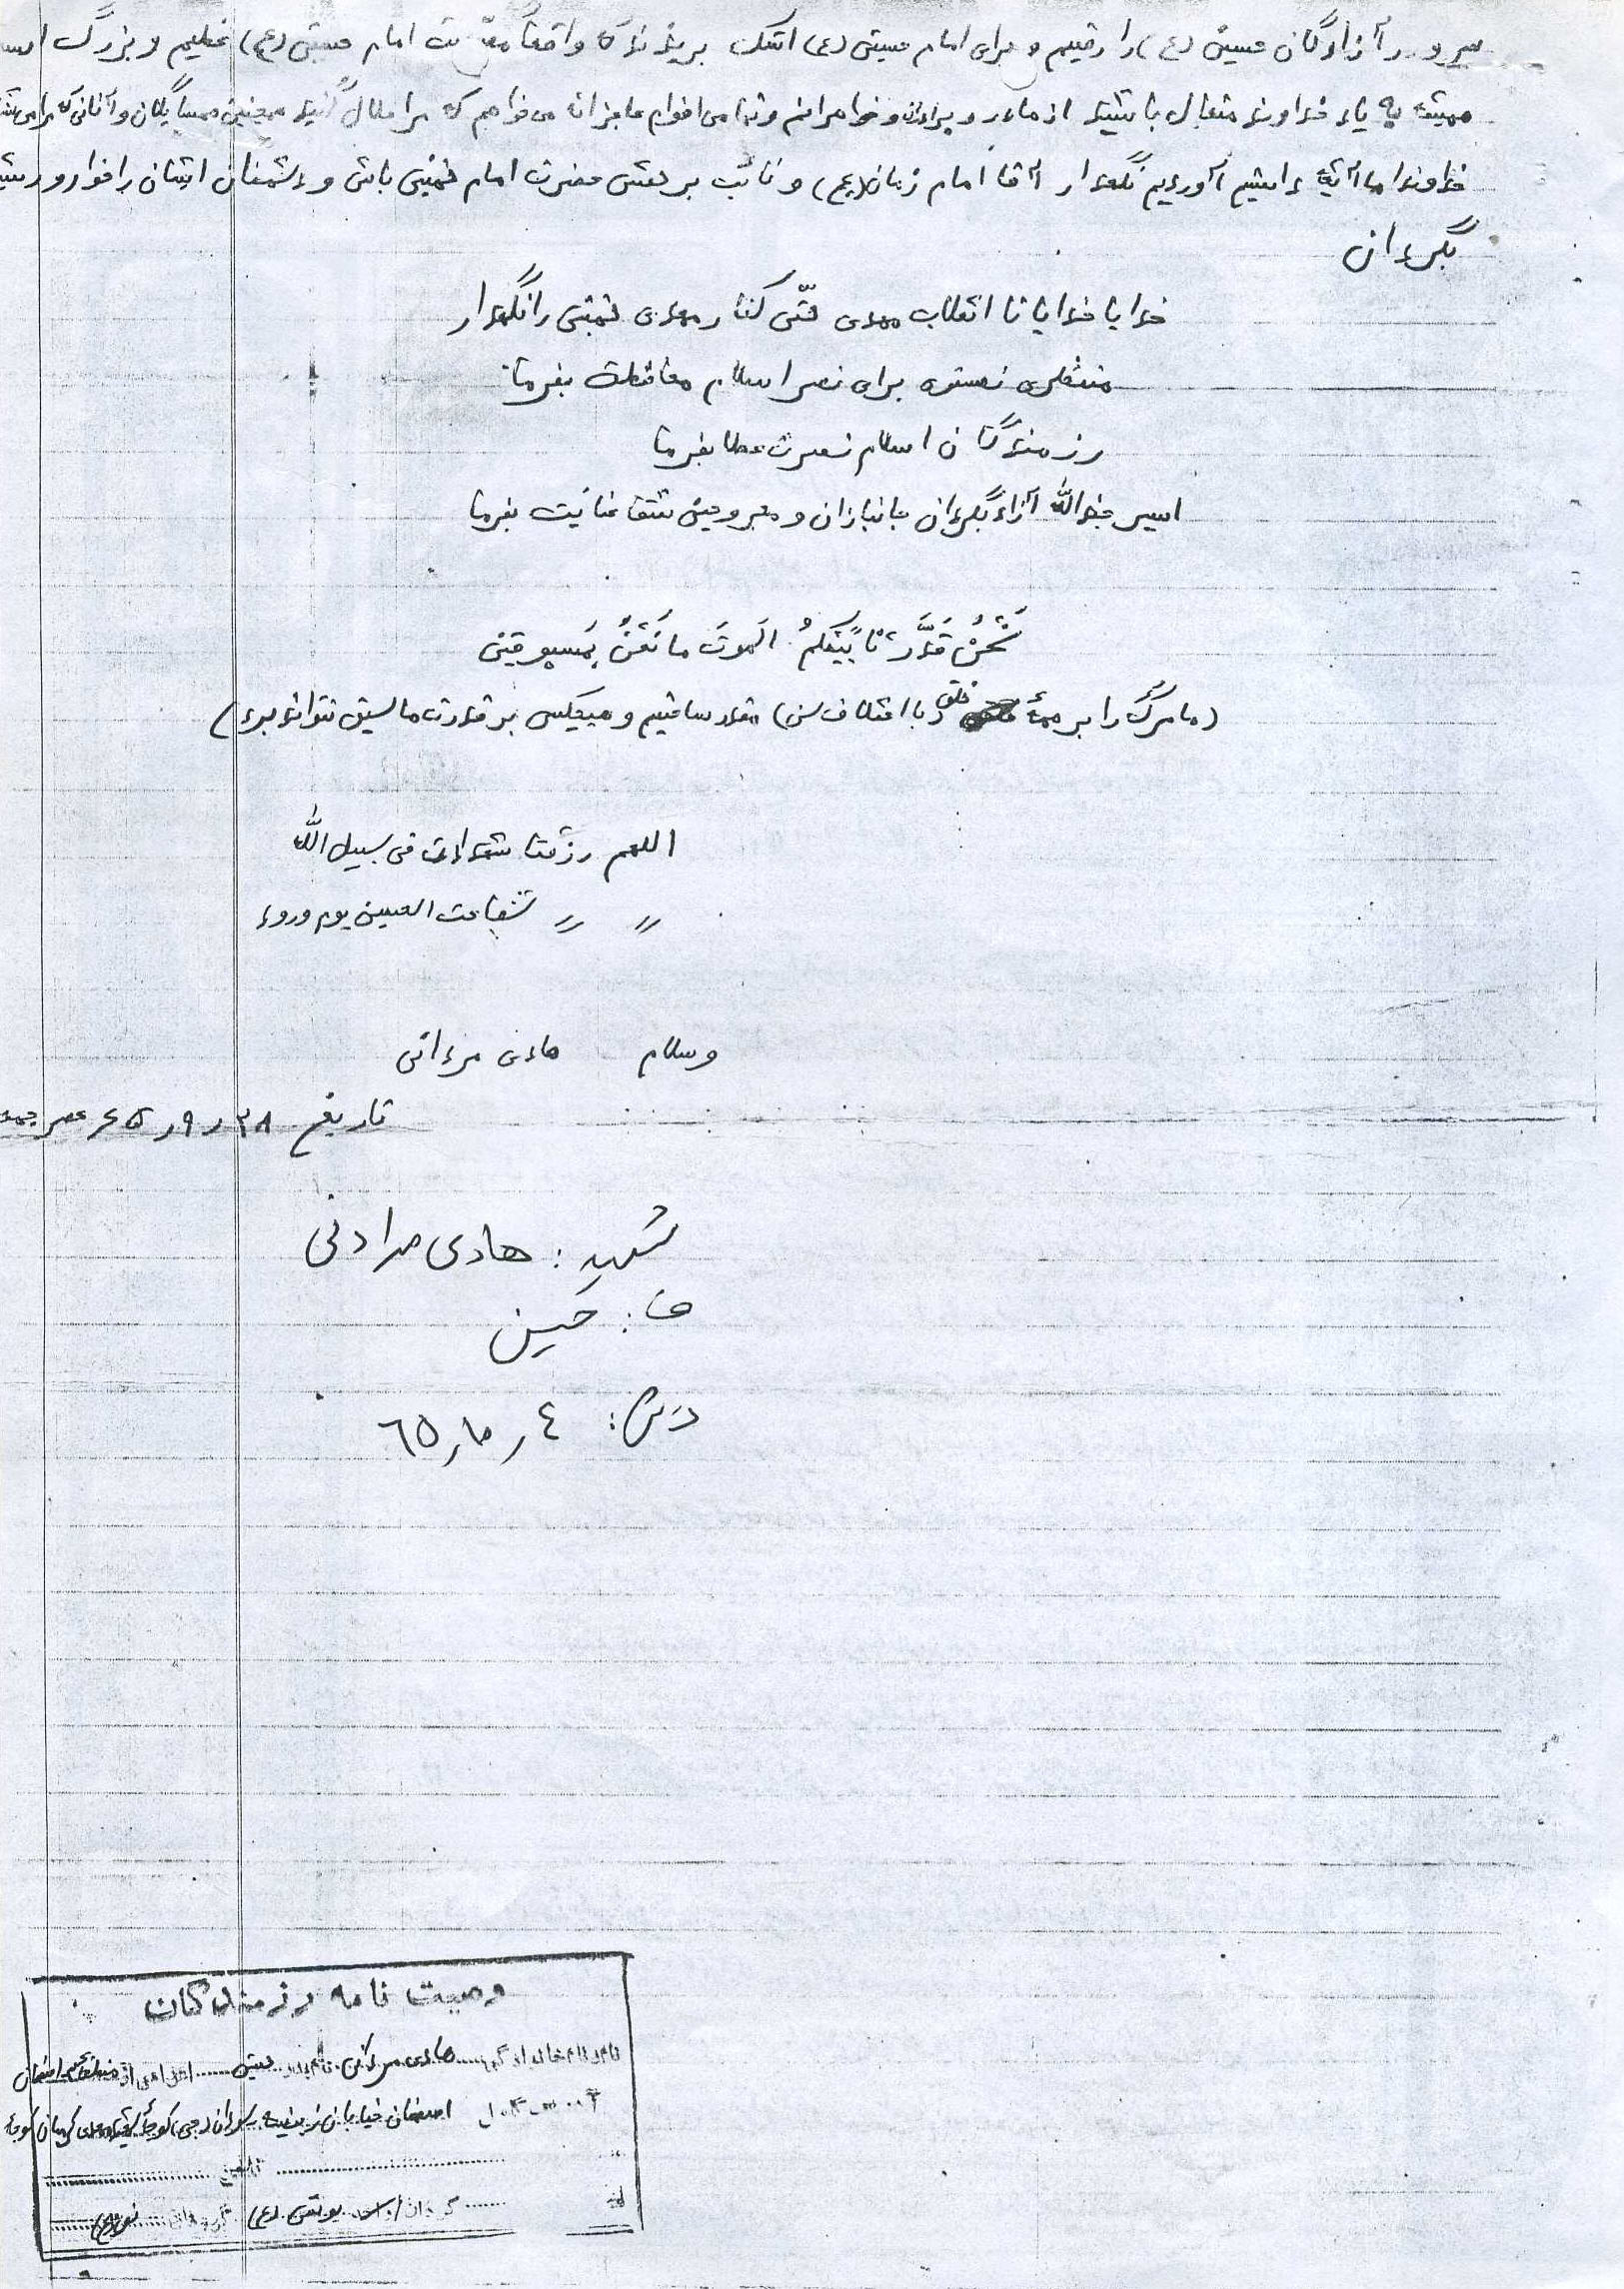 سرور آزادگان حسین (ع) را رفتیم و برای امام حسین (ع) اشک بریزند که واقعاً امام حسین (ع) عظیم و بزرگ
همیشه به یاد خداوند متعال باشید از مادر و برادران و خواهرانم و تمامی اقوام عاجزانه می خواهم که مرا حلال کنید همچنین همسایگان و آنانی که مرا می
خداوندا ما آنچه داشتیم آوردیم نگهدار آقا امام زمان (عج) و نائب بر حقش حضرت امام خمینی باش و دشمنان ایشان را خوار و
بگردان
خدایا خدایا تا انقلاب مهدی حتّی کنار مهدی خمینی را نگهدار
منتظری نستوه برای نصر اسلام محافظت بفرما
رزمندگان اسلام نصرت عطا بفرما
اسیر جندالله آزاد بگردان جانبازان و مجروحین شفا عنایت بفرما
نَحْنُ قَدَّرْنا بَیْنَکُمُ المَوتَ ما نَحْنُ بِمَسبوقین
(ما مرگ را بر همهٔ خلق (با اختلاف سن) مقدر ساختیم و هیچکس بر قدرت ما سبق نتواند برد)
اللهم رزقنا شهادت فی سبیل الله
〃 〃 شفاعت الحسین یوم ورود
وسلام هادی مردانی
تاریخ ۲۸ر۹ر۶۵ عصر جمعه
شهید : هادی مردانی
ف : حسین
ش : ٤ر ۱۰ر ٦٥
وصیت نامه رزمندگان
نام و نام خانوادگی هادی مردانی نام پدر حسین اعزامی از اصفهان
اصفهان خیابان زینبیه کوچه
تلفن
گردان / واحد یونس (ع)